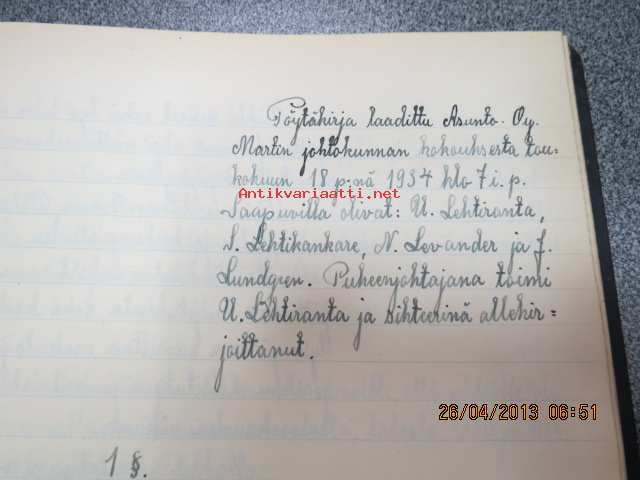 Pöytäkirja laadittu Asunto. Oy.
Martin johtokunnan kokouksesta tou=
kokuun 18 p:nä 1934 klo 7 i. p.
Antikvariaatti.net
Saapuvilla olivat: U. Lehtiranta,
S. Lehtikankare, N. Levander ja J.
Lundgren. Puheenjohtajana toimi
U. Lehtiranta ja sihteerinä allekir=
joittanut.
26/04/2013 06:51
1 §.